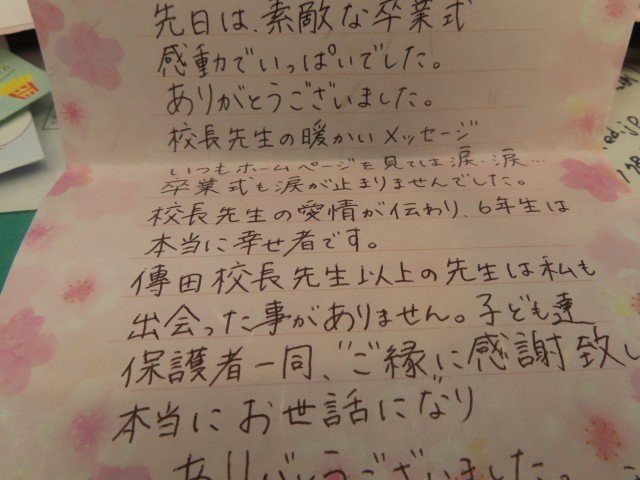 先日は、素敵な卒業式
感動でいっぱいでした。
ありがとうございました。
校長先生の暖かいメッセージ
いつもホームページを見ては涙、涙…
卒業式も涙が止まりませんでした。
校長先生の愛情が伝わり、6年生は
本当に幸せ者です。
傳田校長先生以上の先生は私も
出会った事がありません。子ども達
保護者一同、ご縁に感謝致し
本当にお世話になり
ありがとうございました。